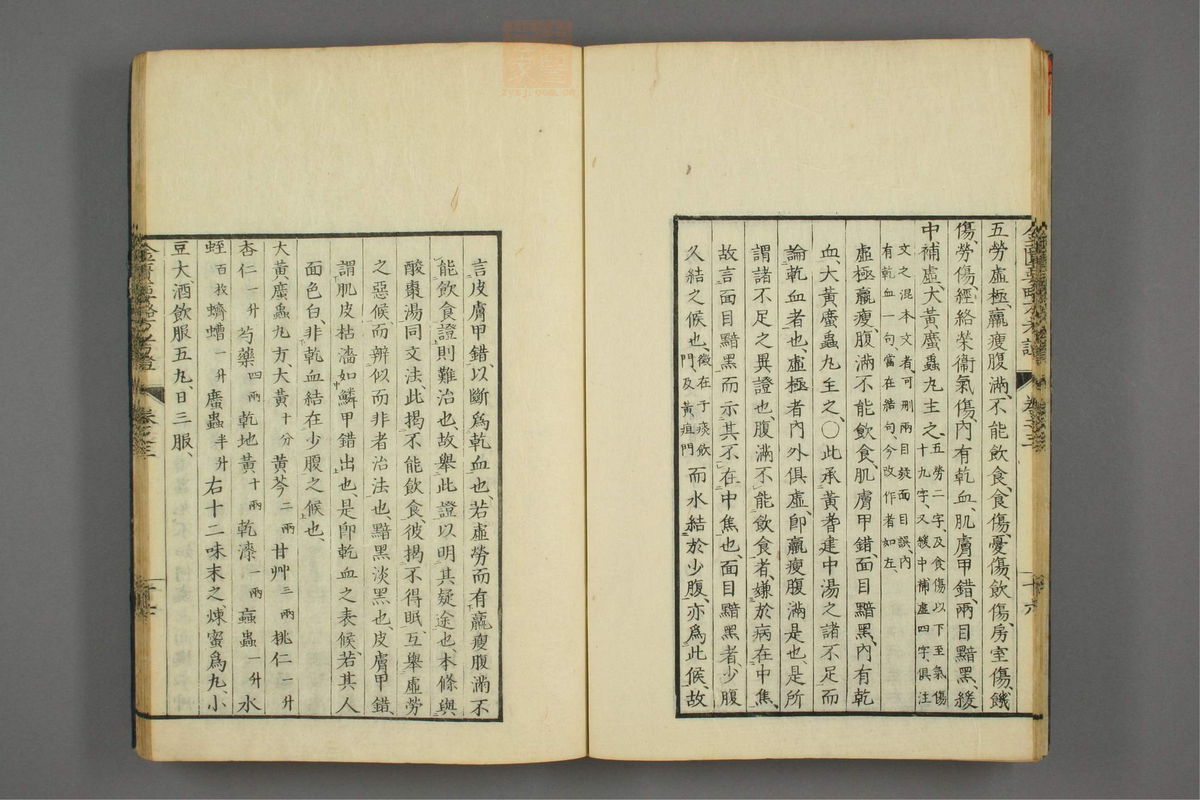 五勞虛極、羸瘦腹滿、不能飲食、食傷、憂傷、飲傷、房室傷、饑
傷、勞傷、經絡榮衞氣傷、內有乾血、肌膚甲錯、兩目黯黑、緩
中補虛、大黃䗪蟲丸主之、五勞二字、及食傷以下至氣傷十九字、又緩中補虛四字、俱注
文之混本文者、可刪、兩目錢面目誤、內有乾血一句、當在結句、今改作者如左、
虛極羸瘦、腹滿不能飲食、肌膚甲錯、面目黯黑、內有乾
血、大黃䗪蟲丸主之、〇此承黃耆建中湯之諸不足而
論乾血者也、虛極者內外俱虛、卽羸瘦腹滿是也、是所
謂諸不足之異證也、腹滿不能飲食者、嫌於病在中焦、
故言面目黯黑而示其不在中焦也、面目黯黑者、少腹
久結之候也、徵在于痰飲門、及黃疸門而水結於少腹、亦爲此候、故
言皮膚甲錯、以斷爲乾血也、若虛勞而有羸瘦腹滿不
能飲食證、則難治也、故舉此證以明其疑途也、本條與
酸棗湯同文法、此揭不能飲食、彼揭不得眠、互舉虛勞
之惡候、而辨似而非者治法也、黯黑淡黑也、皮膚甲錯、
謂肌皮枯濇如鱗甲錯出也、是卽乾血之表候、若其人
面色白、非乾血結在少腹之候也、
大黃䗪蟲丸方、大黃十分 黃芩二兩 甘艸三兩 桃仁一升
杏仁一升 芍藥四兩 乾地黃十兩 乾漆一兩 蝱蟲一升 水
蛭百枚 蠐螬一升 䗪蟲半升 右十二味末之、煉蜜爲丸、小
豆大、酒飲服五丸、日三服、
卷之三
十六